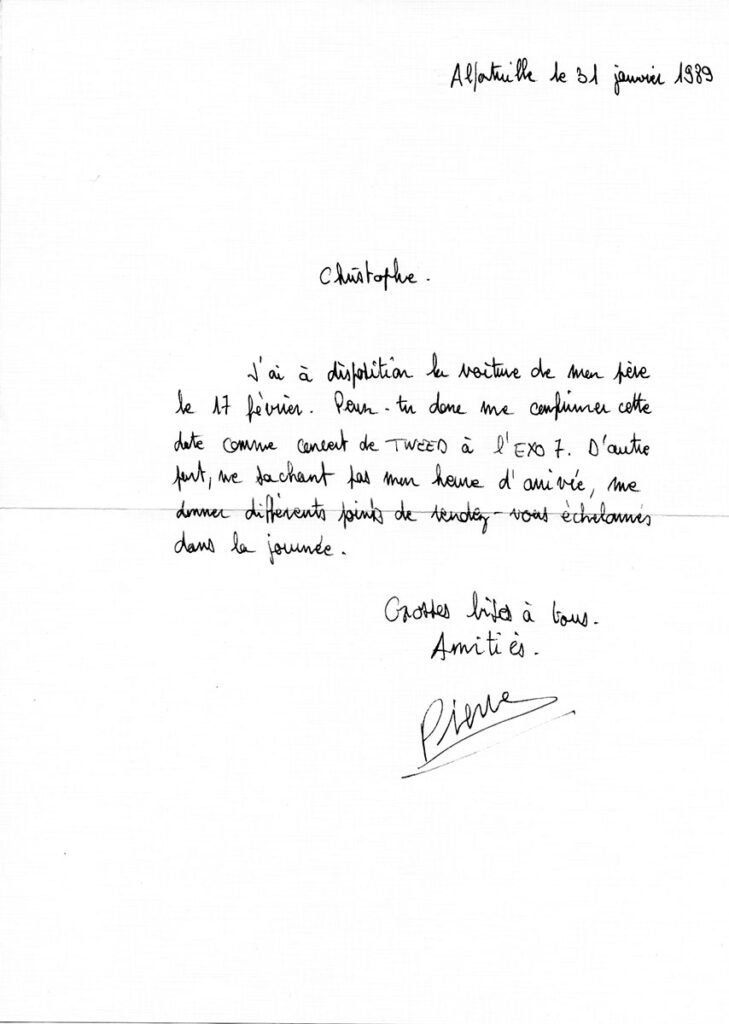 Alfortville le 31 janvier 1989
Christophe.
J'ai à disposition la voiture de mon père
le 17 février. Peux-tu donc me confirmer cette
date comme concert de TWEED à l'EXO 7. D'autre
part, ne sachant pas mon heure d'arrivée, me
donner différents points de rendez-vous échelonnés
dans la journée.
Grosses bises à tous.
Amitiés.
Pierre